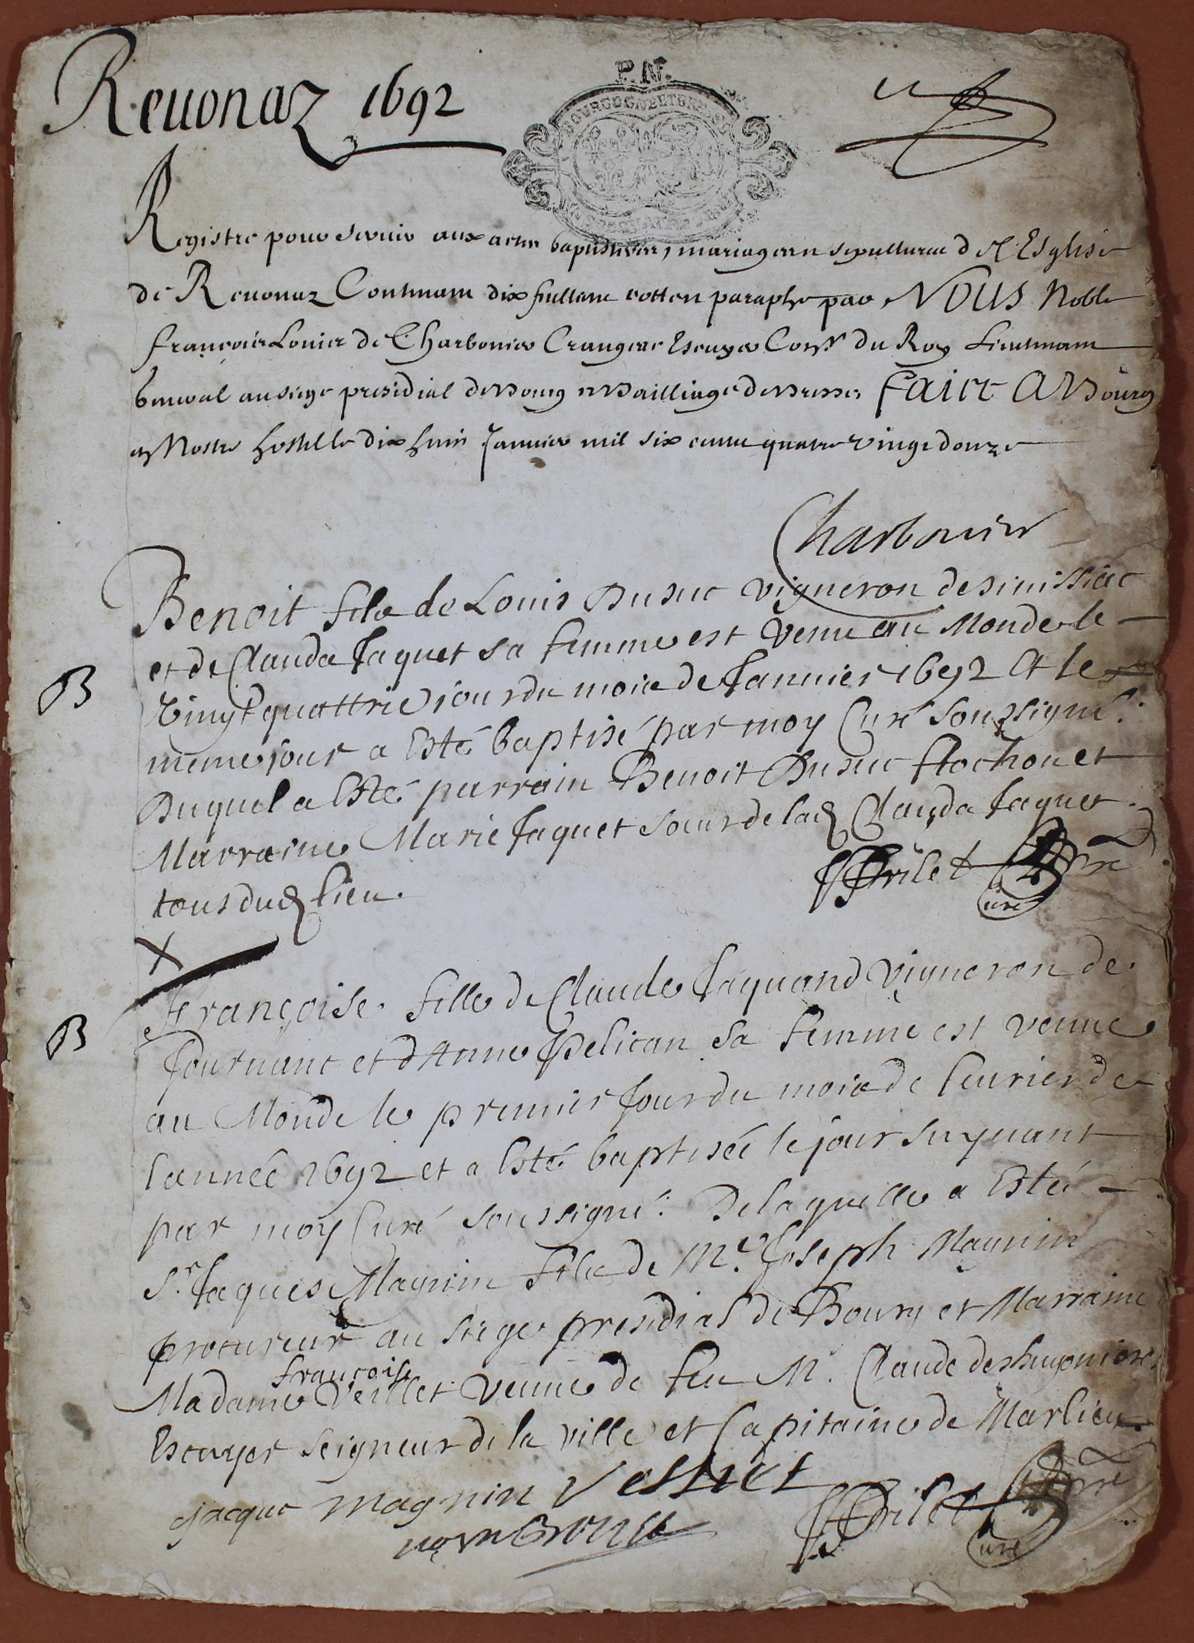 Reuonaz 1692
P. N.
BOURGOGNE ET BRESSE
Registre pour seruir aux actes baptistaires, mariages et sepultures de l'Esglise
de Reuonaz Contenant dix feuillets cottes et paraphe par NOUS Noble
françois Louis de Charbonier Crangeac Escuyer Cons.r du Roy Lieutenant
General au siege presidial de Bourg et Bailliage de Bresse, FAICT A Bourg
en Nostre hostel le dix huit Januier mil six cents quatre vingt douze
Charbonier
B
Benoit fils de Louis Dusuc vigneron de
et de Clauda Jaquet sa femme est venu au Monde le
vingt quattrie jour du mois de Januier 1692 et le
meme jour a esté baptisé par moy Curé soussigné.
Duquel a esté parrain Benoit Dusuc et
Marraine Marie Jaquet soeur de lad. Clauda Jaquet
tous dud. lieu.
Brilet pre
Curé
X
B
Françoise fille de Claude Jaquand vigneron de
Journanc et d'Anne Pelican sa femme est venue
au Monde le premier Jour du mois de feurier de
l'année 1692 et a esté baptisée le jour suyuant
par moy Curé soussigné. De laquelle a esté
S.r Jaques Magnin fils de M.e Joseph Magnin
procureur au siege presidial de Bourg et Marraine
françoise
Madame Veillet veuue de feu M.r Claude deshugonieres
Escuyer seigneur de la ville et Capitaine de Marlieu
jacque magnin Vellliet
Brilet pre
Curé